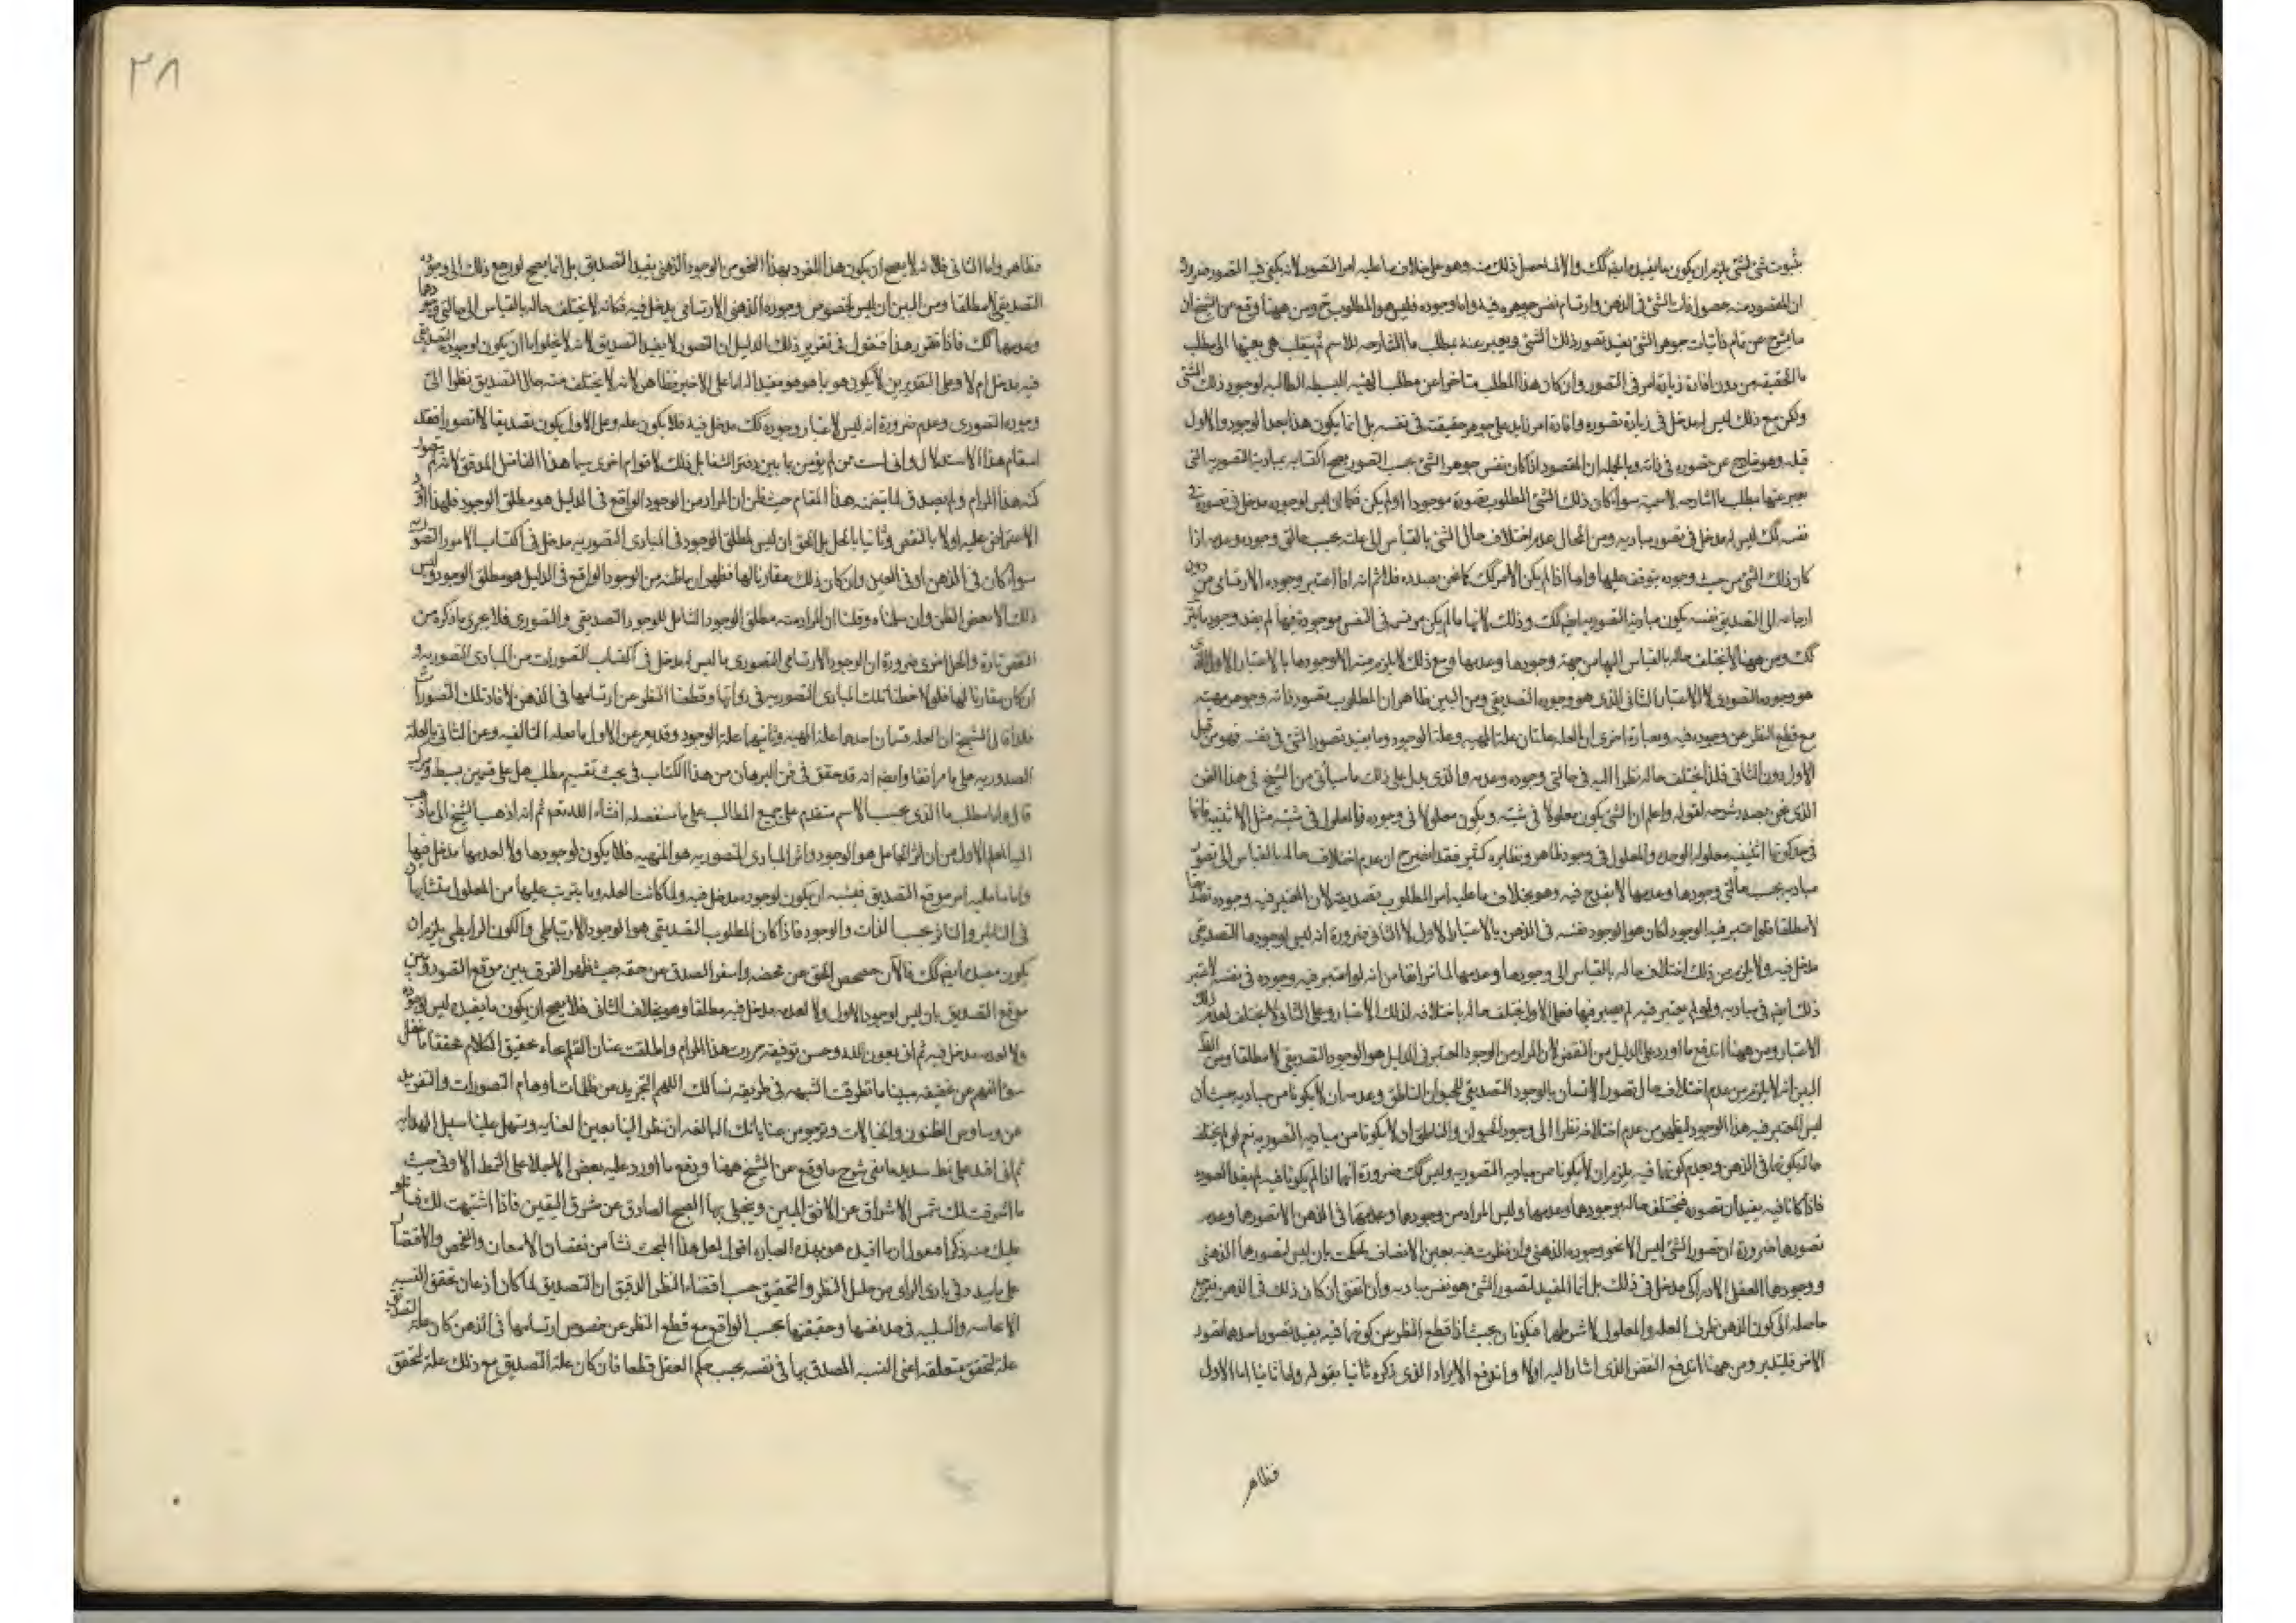 بثبوت شئ لشئ يلزم ان يكون ما يفيده ايضا كك والا لما حصل ذلك منه وهو على خلاف ما عليه امر التصور لانه يكفى فيه التصور ضرورة
ان المقصود منه حصول ذات الشئ فى الذهن وارتسام نفس جوهره فيه واما وجوده فليس هو المطلوب ح ومن ههنا وقع من الشيخ ان
ما يشرح عن تمام ذاتيات جوهر الشئ يفيد تصور ذلك الشئ ويعبر عنه بمطلب ما الشارحه للاسم ثم ينقلب هى بعينها الى مطلب
ما الحقيقيه من دون افادة زيادة امر فى التصور وان كان هذا المطلب متاخرا عن مطلب الهليه البسيطه الطالبه لوجود ذلك الشئ
ولكن مع ذلك ليس له مدخل فى زيادة تصوره وافادة امر زايد على جوهر حقيقته فى نفسه بل انما يكون هذا بعد الوجود والاول
قبله وهو خارج عن تصوره فى ذاته وبالجمله ان المقصود اذا كان نفس جوهر الشئ بحسب التصور يصح اكتسابه بمباديه التصوريه التى
يعبر عنها بمطلب ما الشارحه لاسمية سواء كان ذلك الشئ المطلوب بصورة موجودا او لم يكن فكما ان ليس لوجوده مدخل فى تصوره فى
نفسه كك ليس له مدخل فى تصور مباديه ومن المحال عدم اختلاف حال الشئ بالقياس الى علته بحسب حالتى وجوده وعدمه اذا
كان ذلك الشئ من حيث وجوده يتوقف عليها واما اذا لم يكن الامر كك كما نحن بصدده فلا ثم انه اذا اعتبر وجوده الارتسامى من دون
ارجاعه الى التصديق نفسه يكون مباديه التصوريه ايضا كك وذلك لانها ما لم يكن مرتسمة فى النفس موجودة فيها لم يفد وجود ما يتم
كك ومن ههنا لا يختلف حاله بالقياس اليها من جهة وجودها وعدمها ومع ذلك لا يلزم منه الا وجودها بالاعتبار الاول الذى
هو وجوده التصورى لا الاعتبار الثانى الذى هو وجوده التصديقى ومن البين الظاهر ان المطلوب بتصور ذاته وجوهر مهيته
مع قطع النظر عن وجوده فيه وبعبارة اخرى ان العلة علتان علة المهيه وعلة الوجود وما يفيد تصور الشئ فى نفسه فهو من قبيل
الاول دون الثانى فلذا يختلف حاله نظرا اليه فى حالتى وجوده وعدمه والذى يدل على ذلك ما سيأتى من الشيخ فى هذا الفن
الذى نحن بصدد شرحه لقوله واعلم ان الشئ يكون معلولا فى شيئيته ويكون معلولا فى وجوده فالمعلول فى شيئيته مثل الاثنينيه فانها
فى حد كونها اثنينيه معلوله للوحده والمعلول فى وجوده ظاهر ونظايره كثير فقد اتضح ان عدم اختلاف حاله بالقياس الى تصور
مباديه بحسب حالتى وجودها وعدمها لا يقدح فيه وهو بخلاف ما عليه امر المطلوب بتصديقه لان المعتبر فيه وجوده تصديقا
لا مطلقا فلو اعتبر فيه الوجود لكان هو الوجود نفسه فى الذهن بالاعتبار الاول لا الثانى ضرورة انه ليس لوجودها التصديقى
مدخل فيه ولا يلزم من ذلك اختلاف حاله بالقياس الى وجودها وعدمها لما مر انفا من انه لو اعتبر فيه وجوده فى نفسه لاعتبر
ذلك ايضا فى مباديه ولو لم يعتبر فيه لم يعتبر فيها فعلى الاول يختلف حاله باختلافه لذلك الاعتبار وعلى الثانى لا يختلف لعدم ذلك
الاعتبار ومن ههنا اندفع ما اورد على الدليل من النقض لان المراد من الوجود المعتبر فى الدليل هو الوجود التصديقى لا مطلقا ومن
البين انه لا يلزم من عدم اختلاف حال تصور الانسان بالوجود التصديقى للحيوان الناطق وعدمه ان لا يكونا من مباديه حيث ان
ليس المعتبر فيه هذا الوجود ليظهر من عدم اختلافه نظرا الى وجود الحيوان والناطق ان لا يكونا من مباديه التصوريه نعم لو لم يختلف
حاله بكونهما فى الذهن وبعدم كونهما فيه يلزم ان لا يكونا من مباديه التصوريه وليس كك ضرورة انهما اذا لم يكونا فيه لم يفيدا تصوره
فاذا كانا فيه يفيدان تصوره فيختلف حاله بوجودهما وعدمهما وليس المراد من وجودهما وعدمهما فى الذهن الا تصورهما وعدم
تصورهما ضرورة ان تصور الشئ ليس الا نحو وجوده الذهنى وان نظرت فيه بعين الانصاف لحكمت بان ليس لتصورها الذهنى
ووجودها العقلى الادراكى مدخل فى ذلك بل انما المفيد لتصور الشئ هو نفس مباديه وان اتفق ان كان ذلك فى الذهن فيرجع
حاصله الى كون الذهن ظرف العله والمعلول لا شرطهما فيكونان بحيث اذا قطع النظر عن كونهما فيه يفيد تصور احدهما تصور
الاخر فليتدبر ومن ههنا اندفع النقض الذى اشار اليه اولا واندفع الايراد الذى ذكره ثانيا بقوله واما ثانيا اما الاول
فظاهر
٣٨
فظاهر واما الثانى فلانه لا يصح ان يكون هذا الفرد بهذا النحو من الوجود الذهنى يفيد التصديق بل انما يصح لو رجع ذلك الى وجوده
التصديقى لا مطلقا ومن البين ان ليس لخصوص وجوده الذهنى الارتسامى مدخل فيه فكانه لا يختلف حاله بالقياس الى حالتى وجودها
وعدمها كك فاذا تقرر هذا فنقول فى تقرير ذلك الدليل ان التصور لا يفيد التصديق لانه لا يخلو اما ان يكون لوجوده التصديقى
فيه مدخل ام لا وعلى التقديرين لا يكون هو بما هو هو مفيدا له اما على الاخير فظاهر لانه لا يختلف منه حال التصديق نظرا الى
وجوده التصورى وعدمه ضرورة انه ليس لاعتبار وجوده كك مدخل فيه فلا يكون علة وعلى الاول يكون تصديقا لا تصورا فقد
استقام هذا الاستدلال وانى لست ممن لم يؤمن بما بين دفتى الشفا بل ذلك لاقوام اخرى بينهما هذا الفاضل المدقق لانه لم يتصور
كنه هذا المرام ولم يصدق لما يتضمنه هذا المقام حيث ظن ان المراد من الوجود الواقع فى الدليل هو مطلق الوجود فلهذا اورد
الاعتراض عليه اولا بالنقض وثانيا بالحل بل الحق ان ليس لمطلق الوجود فى المبادى التصوريه مدخل فى اكتساب الامور التصوريه
سواء كان فى الذهن او فى العين وان كان ذلك مقارنا لها فظهر ان ما ظنه من الوجود الواقع فى الدليل هو مطلق الوجود وليس
ذلك الا بعض الظن وان سلمناه وقلنا ان المراد منه مطلق الوجود الشامل للوجود التصديقى والتصورى فلا يجرى ما ذكره من
النقض تارة والحل اخرى ضرورة ان الوجود الارتسامى التصورى ما ليس له مدخل فى اكتساب التصورات من المبادى التصوريه و
ان كان مقارنا لها فلو لاحظنا تلك المبادى التصوريه فى ذواتها وقطعنا النظر عن ارتسامها فى الذهن لافاد تلك التصورات
فلذا قال الشيخ ان العله قسمان احدهما علة المهيه وثانيهما علة الوجود وقد يعبر عن الاول بالعله التالفيه وعن الثانى بالعلة
الصدوريه على ما مر انفا وايضا انه قد حقق فى فن البرهان من هذا الكتاب فى بحث تقسيم مطلب هل على قسمين بسيط ومركب
قال واما مطلب ما الذى بحسب الاسم متقدم على جميع المطالب على ما سنفصله انشاء الله تعم ثم انه اذ ذهب الشيخ الى ما ذهب
اليه المعلم الاول من ان اثر الجاعل هو الوجود واثر المبادى التصوريه هو المهيه فلا يكون لوجودها ولا لعدمها مدخل فيها
واما ما عليه امر موقع التصديق فيشبه ان يكون لوجوده مدخل فيه ولما كانت العله وما يترتب عليها من المعلول متشابهان
فى التاثير والتاثر بحسب الذات والوجود فاذا كان المطلوب التصديقى هو الوجود الارتباطى والكون الرابطى يلزم ان
يكون مفيده ايضا كك فالآن حصحص الحق عن محضه واسفر الصدق عن حقه حيث ظهر الفرق بين موقع التصور وبين
موقع التصديق بان ليس لوجود الاول ولا لعدمه مدخل فيه مطلقا وهو بخلاف الثانى فلا يصح ان يكون ما يفيده ليس لوجوده
ولا لعدمه مدخل فيه ثم انى بعون الله وحسن توفيقه حررت هذا المرام واطلقت عنان القلم تجاه تحقيق الكلام محققا ما غفل
سؤ الفهم عن تحقيقه مبينا ما تطرقت الشبهه فى طريقه نسألك اللهم التجريد من ظلمات اوهام التصورات والتفريد
عن وساوس الظنون والخيالات ونرجو من عناياتك البالغه ان تنظر الينا بعين العنايه وتسهل علينا سبيل الهدايه
ثم انى اقتدى على نمط سديد ما بقى شرح ما وقع عن الشيخ ههنا ودفع ما اورد عليه بعض الاجلا على النمط الاوفى حيث
ما اشرقت لك شمس الاشراق عن الافق المبين وينجلى بها الصبح الصادق عن مشرق اليقين فاذا اشتبهت لك فيما
عليك منه ذكرا فنقول ان ما افيد هو بهذه العباره اقول لعل هذا البحث نشا من نقصان الامعان والفحص والاقتصار
على ما يبدو فى بادى الراى من جليل النظر والتحقيق حسب اقتضاء النظر الدقيق ان التصديق لما كان اذعان تحقق النسبه
الايجابيه والسلبيه فى حد نفسها وحقيقتها بحسب الواقع مع قطع النظر عن خصوص ارتسامها فى الذهن كان علة التصديق
علة لتحقق متعلقه اعنى النسبه المصدق بها فى نفسه بحسب حكم العقل قطعا فان كان علة التصديق مع ذلك علة لتحقق